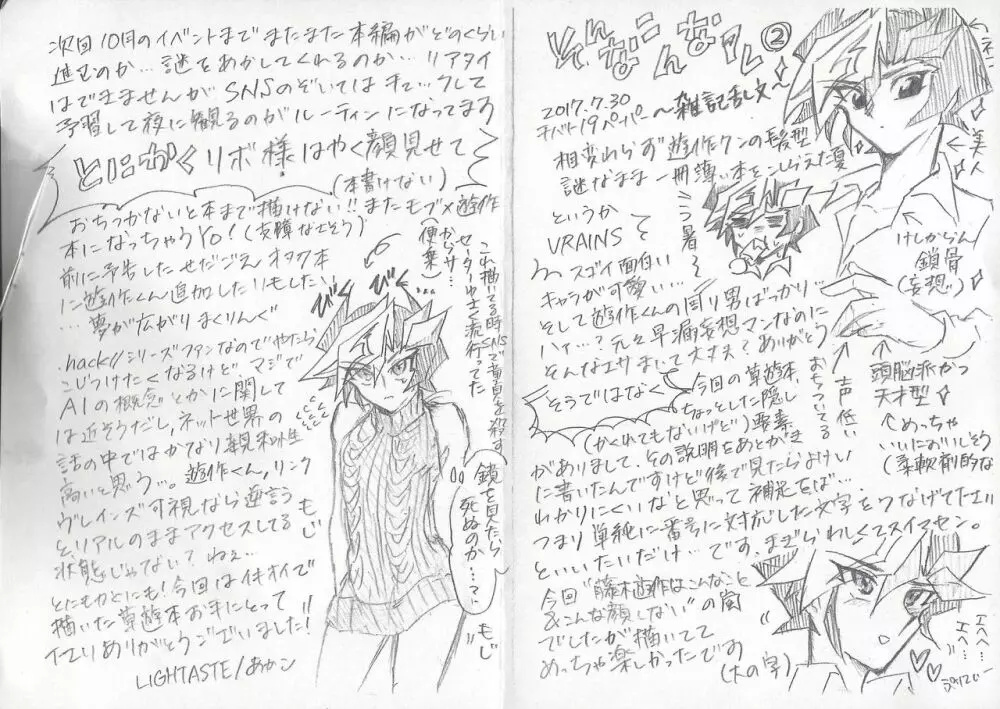 そんなこんな ②
2017.7.30
キバト19ペーパー 〜雑記乱文〜
相変わらず遊作クンの髪型
謎なまま一冊薄い本をこしらえた夏
というか
VRAINS
スゴイ面白い
キャラが可愛い…
そして遊作くんの周り男ばっかり…
ハァ…?元々早漏妄想マンなのに
そんなエサまいて大丈夫?ありがとう
そうではなく
今回の草遊本、
ちょっとした隠し
(かくれてもないけど)要素
がありまして、その説明をあとがき
に書いたんですけど後で見たらよけい
わかりにくいなと思って補足をば…
つまり単純に番号に対応した文字をつなげてただ
といいたいだけ…です、まぎらわしくてスイマセン。
今回"藤木遊作はこんなこと
&こんな顔しない"の嵐
でしたが描いてて
めっちゃ楽しかったですお
(大の字)
暑〜
←美人
けしからん
鎖骨
(妄想)
↑声低い
おちついてる
↑頭脳派かつ
天才型
↑めっちゃ
いいにおいしそう
(柔軟剤的な
エヘヘ…
エヘ…
次回10月のイベントまでまたまた本編がどのくらい
進むのか…謎をあかしてくれるのか… リアタイ
はできませんがSNSのぞいては
予習して夜に観るのがルーティンになってます
とにかくリボ様はやく顔見せて
(本書けない)
おちつかないと本まで描けない!!またモブ×遊作
本になっちゃうYO!(支障なさそう)
前に予告したせだどえオタク本
に遊作くん追加したりもしたい、
…夢が広がりまくりんぐ
.hack//シリーズファンなのでやたら
こじつけたくなるけど、マジで
AIの概念とかに関して
は近そうだし、ネット世界の
話の中ではかなり親和性
高いと思う…。遊作くん、リンク
ヴレインズ可視なら逆言う
と、リアルのままアクセスしてる
状態じゃない?ねぇ…
とにもかくにも!今回はイキオイで
描いた草遊本お手にとって
下さりありがとうございました!
LIGHTASTE/あかこ
これ描いてる時SNSで童貞を殺す
セーターゆさく流行ってた
からサ…
(便乗)
びびび
…
鎖を見たら
死ぬのか…?
もじ
もじ